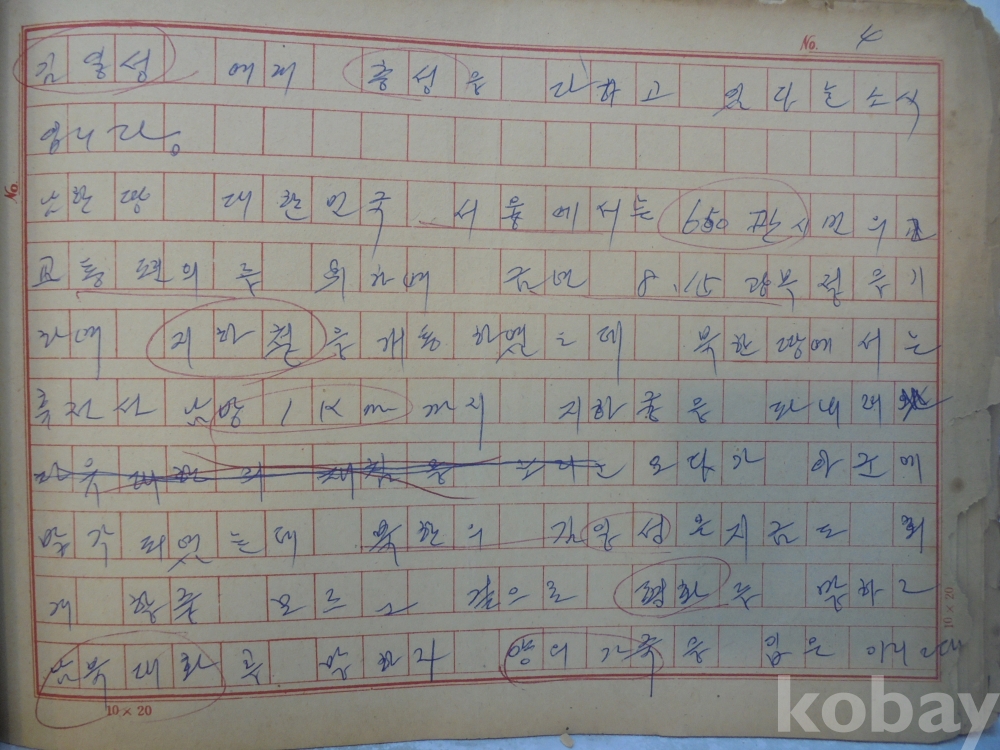 No. 4
김일성 에게 충성을 다하고 있다는 소식
입니다。
남한땅 대한민국 서울에서는 650만 시민의
교통편의를 위하여 금년 8.15 광복절을 기
하여 지하철을 개통하였는데 북한땅에서는
휴전선 남방 1Km까지 지하굴을 파내려
오다가 아군에
발각되었는데 북한의 김일성은 지금도 회
개할줄 모르고 겉으로 평화를 말하고
남북대화를 말하나 양의 가죽을 입은 이리
No.
10×20
10×20
kobay